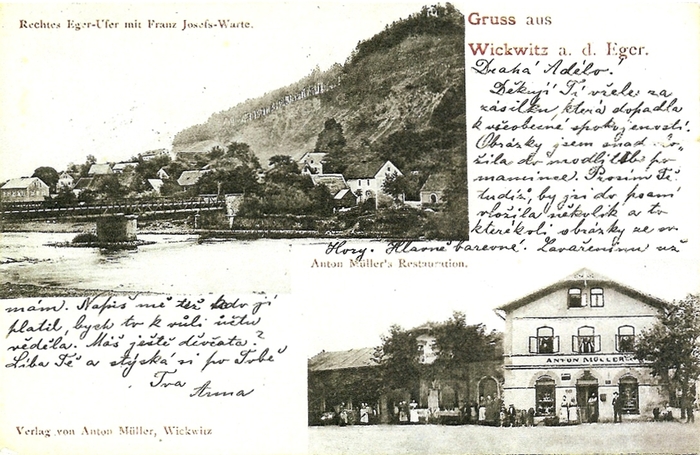 Rechtes Eger-Ufer mit Franz Josefs-Warte.
Gruss aus
Wickwitz a. d. Eger.
Drahá Adélo!
Děkuji Ti vřele za
zásilku, která dopadla
k všeobecné spokojenosti.
Obrázky jsem snad
žila do modlitbě po
mamince. Prosím Tě
tudíž, by jsi do psaní
vložila několik a to
kterékoli obrázky ze
Hory. Hlavně barevné. Zavařeninu už
Anton Müller's Restauration.
mám. Napiš mě též kdo jí
platil, bych to k vůli účtu
věděla. Máš ještě děvčata?
Líbá Tě a stýská si po Tobě
Tvá
Anna
ANTON MÜLLER
Verlag von Anton Müller, Wickwitz